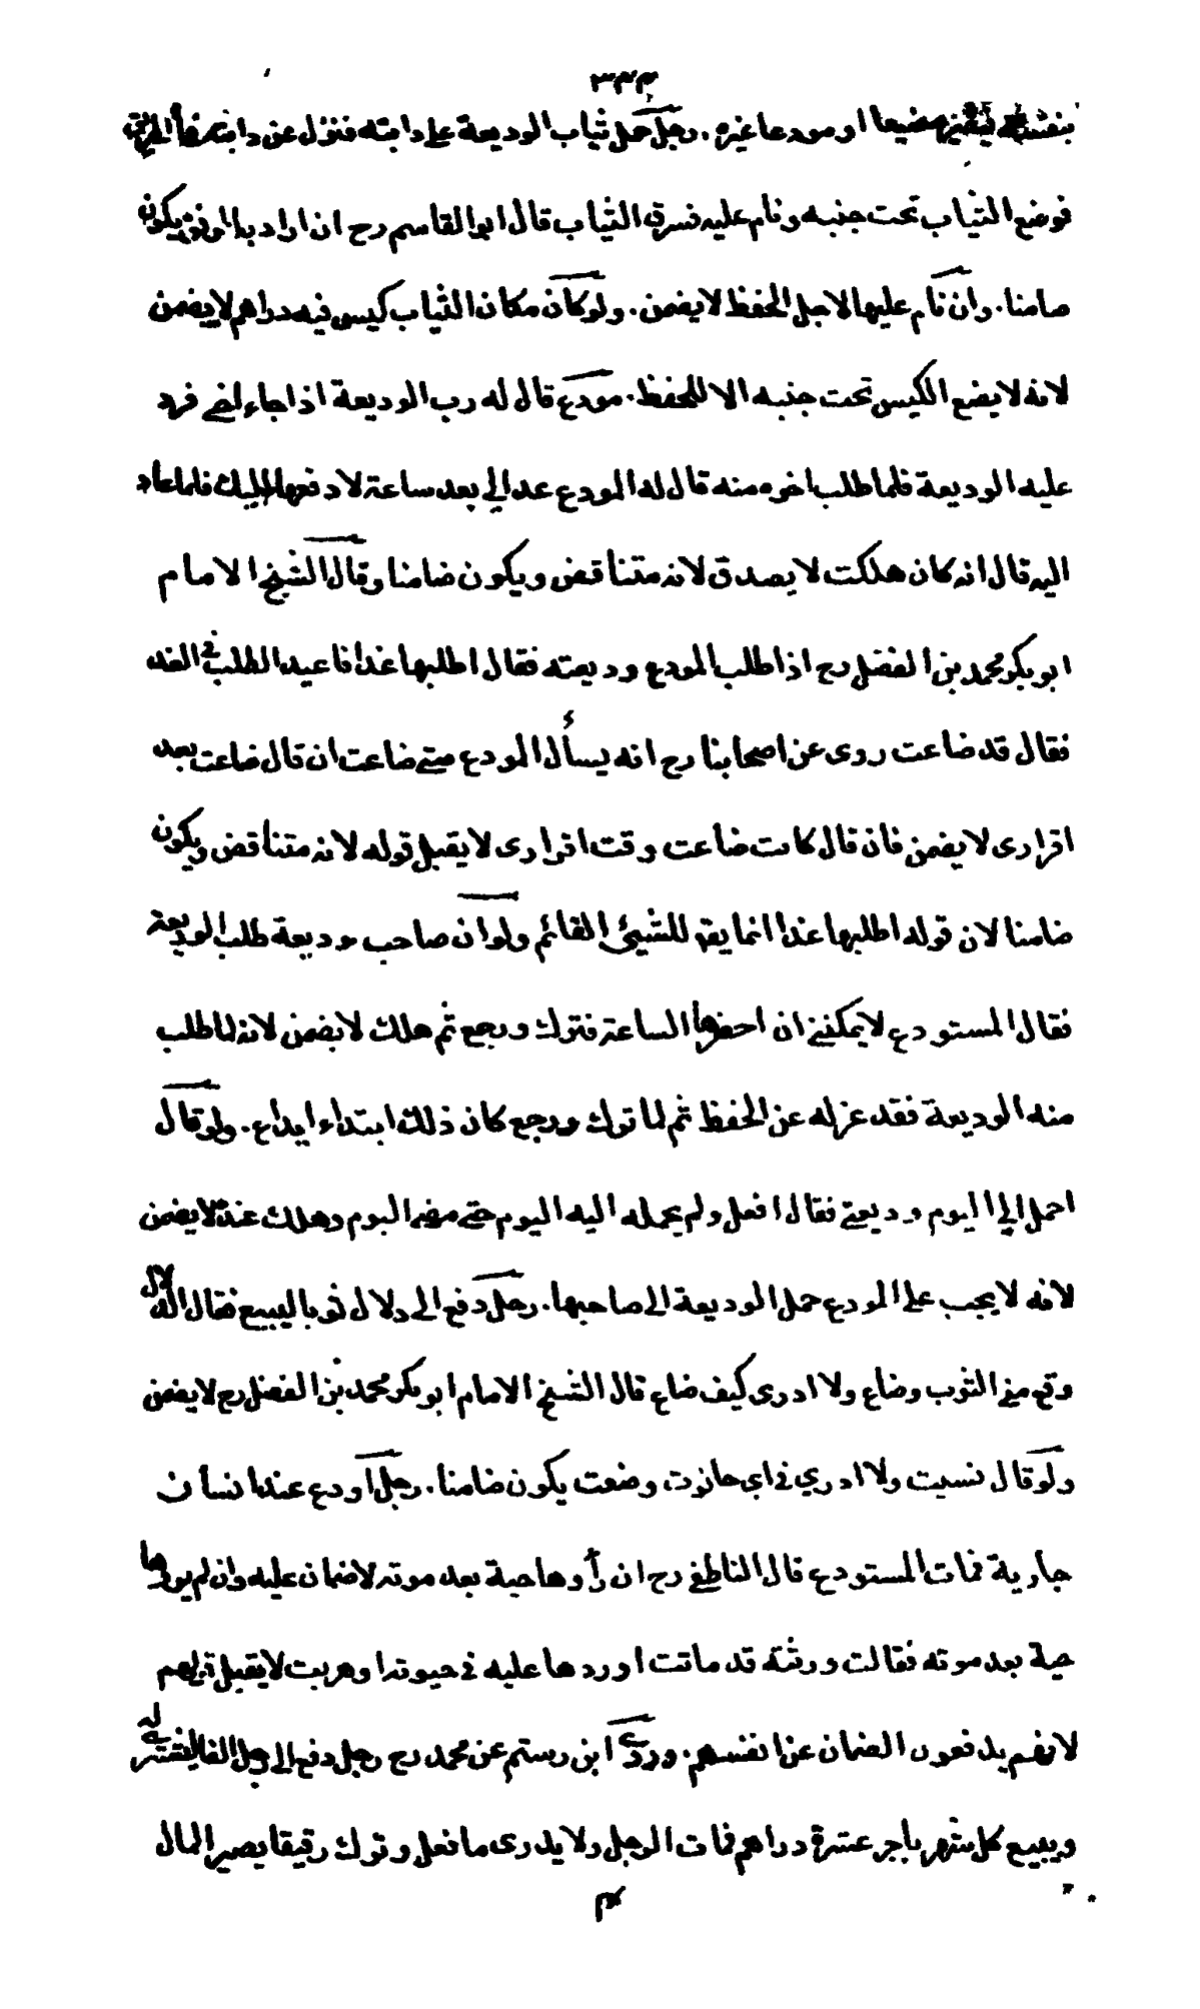 ٣٤٣
مضيعا او مودعا غيره. رجل حمل ثياب الوديعة على دابته فنزل عن دابته في الطريق
فوضع الثياب تحت جنبه ونام عليه فسرق الثياب قال ابو القاسم رح ان اراد به الترفق يكون
ضامنا. وان نام عليها لاجل الحفظ لا يضمن. ولو كان مكان الثياب كيس فيه دراهم لا يضمن
لانه لا يضع الكيس تحت جنبه الا للحفظ. مودع قال له رب الوديعة اذا جاء اخى فرد
عليه الوديعة فلما طلب اخوه منه قال له المودع عد الي بعد ساعة لادفعها اليك فلما عاد
اليه قال انه كان هلكت لا يصدق لانه متناقض ويكون ضامنا وقال الشيخ الامام
ابو بكر محمد بن الفضل رح اذا طلب المودع وديعته فقال اطلبها غدا فاعيد الطلب في الغد
فقال قد ضاعت روى عن اصحابنا رح انه يسأل المودع متى ضاعت ان قال ضاعت بعد
اقرارى لا يضمن فان قال كانت ضاعت وقت اقرارى لا يقبل قوله لانه متناقض ويكون
ضامنا لان قوله اطلبها غدا انما يقع للشيئ القائم ولو ان صاحب وديعة طلب الوديعة
فقال المستودع لا يمكننى ان احضرها الساعة فترك ورجع ثم هلك لا يضمن لانه لما طلب
منه الوديعة فقد عزله عن الحفظ ثم لما ترك ورجع كان ذلك ابتداء ايداع. ولو قال
احمل الي اليوم وديعتى فقال افعل ولم يحمله اليه اليوم حتى مضى اليوم وهلك عنده لا يضمن
لانه لا يجب على المودع حمل الوديعة الى صاحبها. رجل دفع الى دلال ثوبا ليبيع فقال الدلال
وقع منى الثوب وضاع ولا ادرى كيف ضاع قال الشيخ الامام ابو بكر محمد بن الفضل رح لا يضمن
ولو قال نسيت ولا ادري في اى حانوت وضعت يكون ضامنا. رجل اودع عند انسان
جارية فمات المستودع قال الناطفى رح ان رأوها حية بعد موته لا ضمان عليه وان لم يروها
حية بعد موته فقالت ورثته قد ماتت او ردها عليه في حيوته او هربت لا يقبل قولهم
لانهم يدفعون الضمان عن انفسهم. وروى ابن رستم عن محمد رح رجل دفع الى رجل الفا ليشترى له
ويبيع كل شهر باجر عشرة دراهم فمات الرجل ولا يدرى ما فعل وترك رقيقا يصير المال